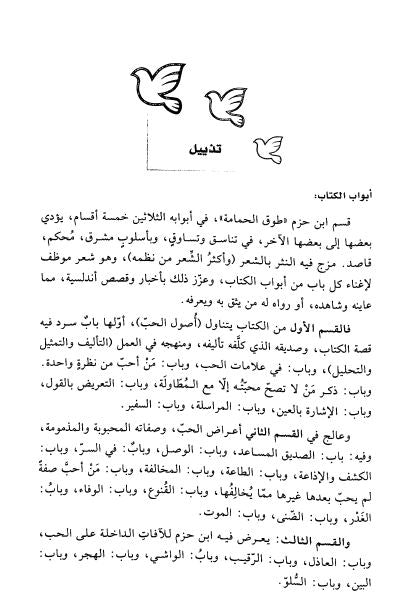 تذييل
أبواب الكتاب:
قسم ابن حزم «طوق الحمامة»، في أبوابه الثلاثين خمسة أقسام، يؤدي
بعضها إلى بعضها الآخر، في تناسق وتساوق، وبأسلوبٍ مشرق، مُحكم،
قاصد. مزج فيه النثر بالشعر (وأكثرُ الشِّعر من نظمه)، وهو شعر موظف
لإغناء كل باب من أبواب الكتاب، وعزّز ذلك بأخبار وقصص أندلسية، مما
عاينه وشاهده، أو رواه له من يثق به ويعرفه.
فالقسم الأول من الكتاب يتناول (أُصول الحبّ)، أوّلها بابٌ سرد فيه
قصة الكتاب، وصديقه الذي كلَّفه تأليفه، ومنهجه في العمل (التأليف والتمثيل
والتحليل)، وباب: في علامات الحب، وباب: من أحبّ من نظرةٍ واحدة.
وباب: ذكر مَنْ لا تصحّ محبّتُه إلّا مع المُطاولَة، وباب: التعريض بالقول،
وباب: الإشارة بالعين، وباب: المراسلة، وباب: السفير.
وعالج في القسم الثاني أعراض الحبّ، وصفاته المحبوبة والمذمومة،
وفيه: باب: الصديق المساعد، وباب: الوصل، وبابٌ: في السرّ، وباب:
الكشف والإذاعة، وباب: الطاعة، وباب: المخالفة، وباب: مَنْ أحبَّ صفةً
لم يحبّ بعدها غيرها ممّا يُخالِفُها، وباب: القُنوع، وباب: الوفاء، وبابُ:
الغَدْر، وباب: الضّنى، وباب: الموت.
والقسم الثالث: يعرض فيه ابن حزم للآفاتِ الداخلة على الحب،
وباب: العاذل، وباب: الرّقيب، وبابُ: الواشي، وباب: الهجر، وباب:
البين، وباب: السُّلوّ.